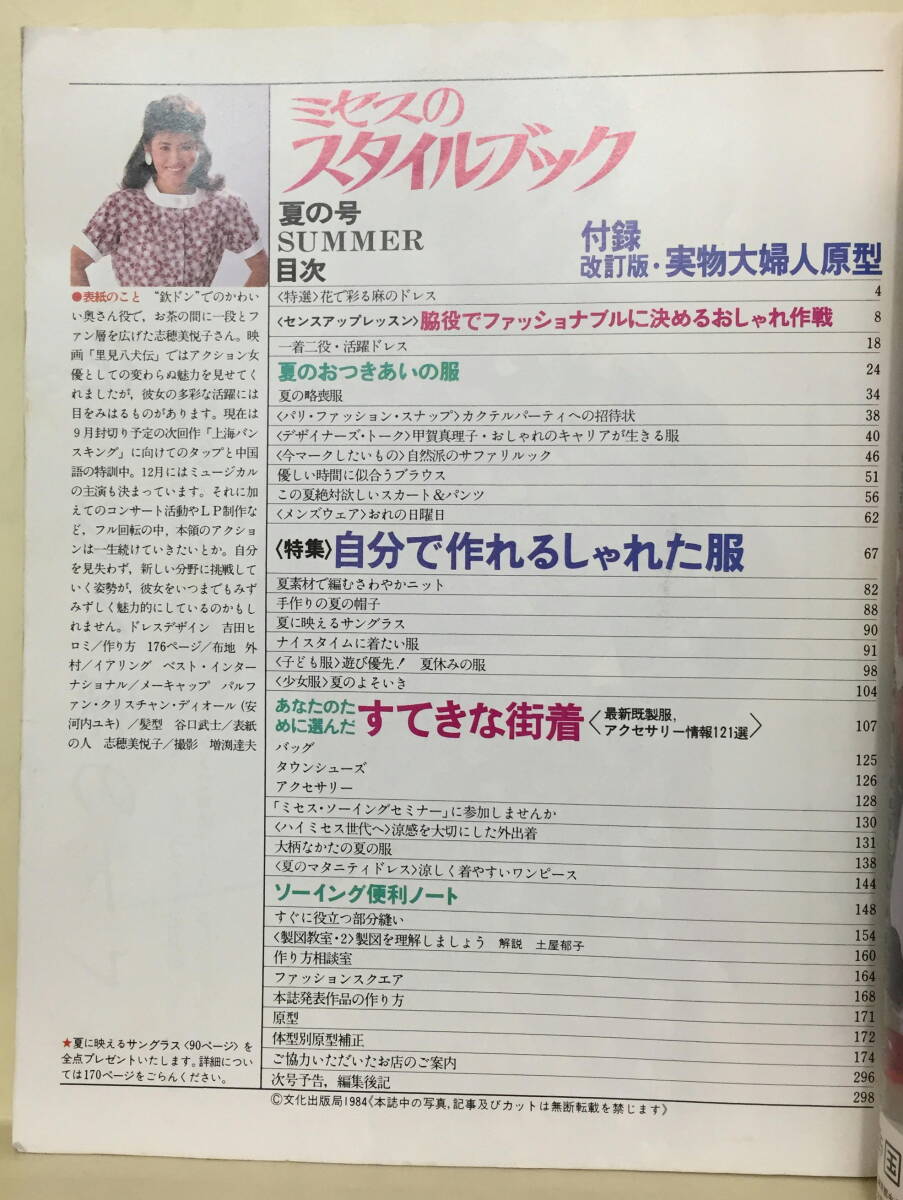 ミセスの
スタイルブック
夏の号
SUMMER
目次
付録
改訂版・実物大婦人原型
〈特選〉花で彩る麻のドレス 4
〈センスアップレッスン〉脇役でファッショナブルに決めるおしゃれ作戦 8
一着二役・活躍ドレス 18
夏のおつきあいの服 24
夏の略喪服 34
〈パリ・ファッション・スナップ〉カクテルパーティへの招待状 38
〈デザイナーズ・トーク〉甲賀真理子・おしゃれのキャリアが生きる服 40
〈今マークしたいもの〉自然派のサファリルック 46
優しい時間に似合うブラウス 51
この夏絶対欲しいスカート&パンツ 56
〈メンズウェア〉おれの日曜日 62
〈特集〉自分で作れるしゃれた服 67
夏素材で編むさわやかニット 82
手作りの夏の帽子 88
夏に映えるサングラス 90
ナイスタイムに着たい服 91
〈子ども服〉遊び優先! 夏休みの服 98
〈少女服〉夏のよそいき 104
あなたのた
めに選んだ すてきな街着〈最新既製服,
アクセサリー情報121選〉 107
バッグ 125
タウンシューズ 126
アクセサリー 128
「ミセス・ソーイングセミナー」に参加しませんか 130
〈ハイミセス世代へ〉涼感を大切にした外出着 131
大柄なかたの夏の服 138
〈夏のマタニティドレス〉涼しく着やすいワンピース 144
ソーイング便利ノート 148
すぐに役立つ部分縫い 154
〈製図教室・2〉製図を理解しましょう 解説 土屋郁子 160
作り方相談室 164
ファッションスクエア 168
本誌発表作品の作り方 171
原型 172
体型別原型補正 174
ご協力いただいたお店のご案内 296
次号予告,編集後記 298
©文化出版局1984《本誌中の写真,記事及びカットは無断転載を禁じます》
●表紙のこと “欽ドン”でのかわい
い奥さん役で,お茶の間に一段とフ
ァン層を広げた志穂美悦子さん。映
画「里見八犬伝」ではアクション女
優としての変わらぬ魅力を見せてく
れましたが,彼女の多彩な活躍には
目をみはるものがあります。現在は
9月封切り予定の次回作「上海バン
スキング」に向けてのタップと中国
語の特訓中。12月にはミュージカル
の主演も決まっています。それに加
えてのコンサート活動やLP制作な
ど,フル回転の中,本領のアクショ
ンは一生続けていきたいとか。自分
を見失わず,新しい分野に挑戦して
いく姿勢が,彼女をいつまでもみず
みずしく魅力的にしているのかもし
れません。ドレスデザイン 吉田ヒ
ロミ/作り方 176ページ/布地 外
村/イアリング ベスト・インター
ナショナル/メーキャップ パルフ
ァン・クリスチャン・ディオール(安
河内ユキ)/髪型 谷口武士/表紙
の人 志穂美悦子/撮影 増渕達夫
★夏に映えるサングラス〈90ページ〉を
全点プレゼントいたします。詳細につい
ては170ページをごらんください。
国